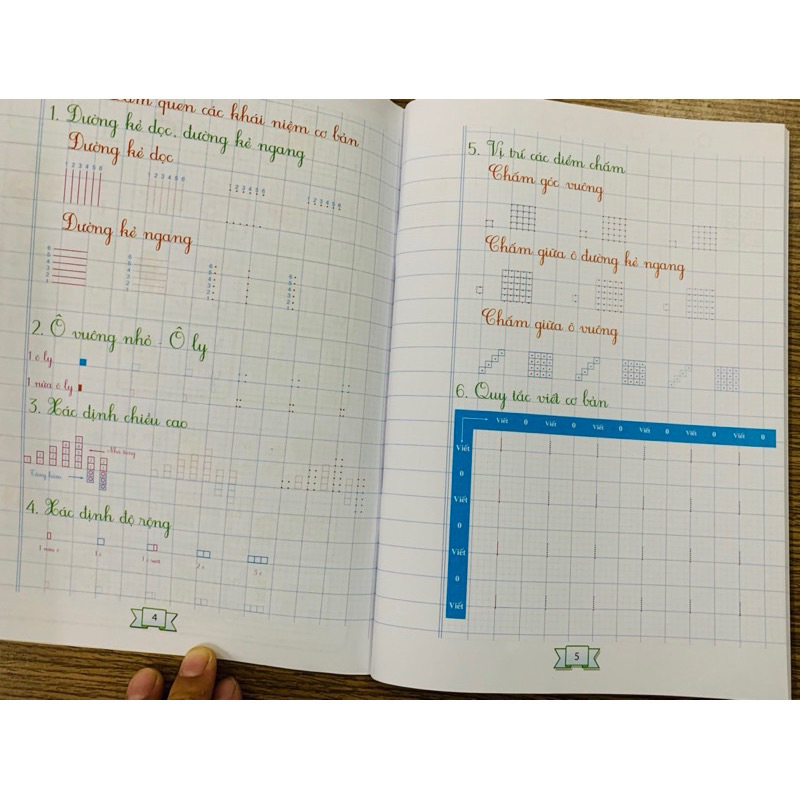 quen các khái niệm cơ bản
1. Đường kẻ dọc, đường kẻ ngang
Đường kẻ dọc
1 2 3 4 5 6
1 2 3 4 5 6
1 2 3 4 5 6
1 2 3 4 5 6
Đường kẻ ngang
6 5 4 3 2 1
6 5 4 3 2 1
6 5 4 3 2 1
6 5 4 3 2 1
2. Ô vuông nhỏ - Ô ly
1 ô ly
1 nửa ô ly
3. Xác định chiều cao
4. Xác định độ rộng
4
5. Vị trí các điểm chấm
Chấm góc vuông
Chấm giữa ô đường kẻ ngang
Chấm giữa ô vuông
6. Quy tắc viết cơ bản
Viết 0 Viết 0 Viết 0 Viết 0 Viết 0 Viết 0
Viết
0
Viết
0
Viết
0
Viết
5